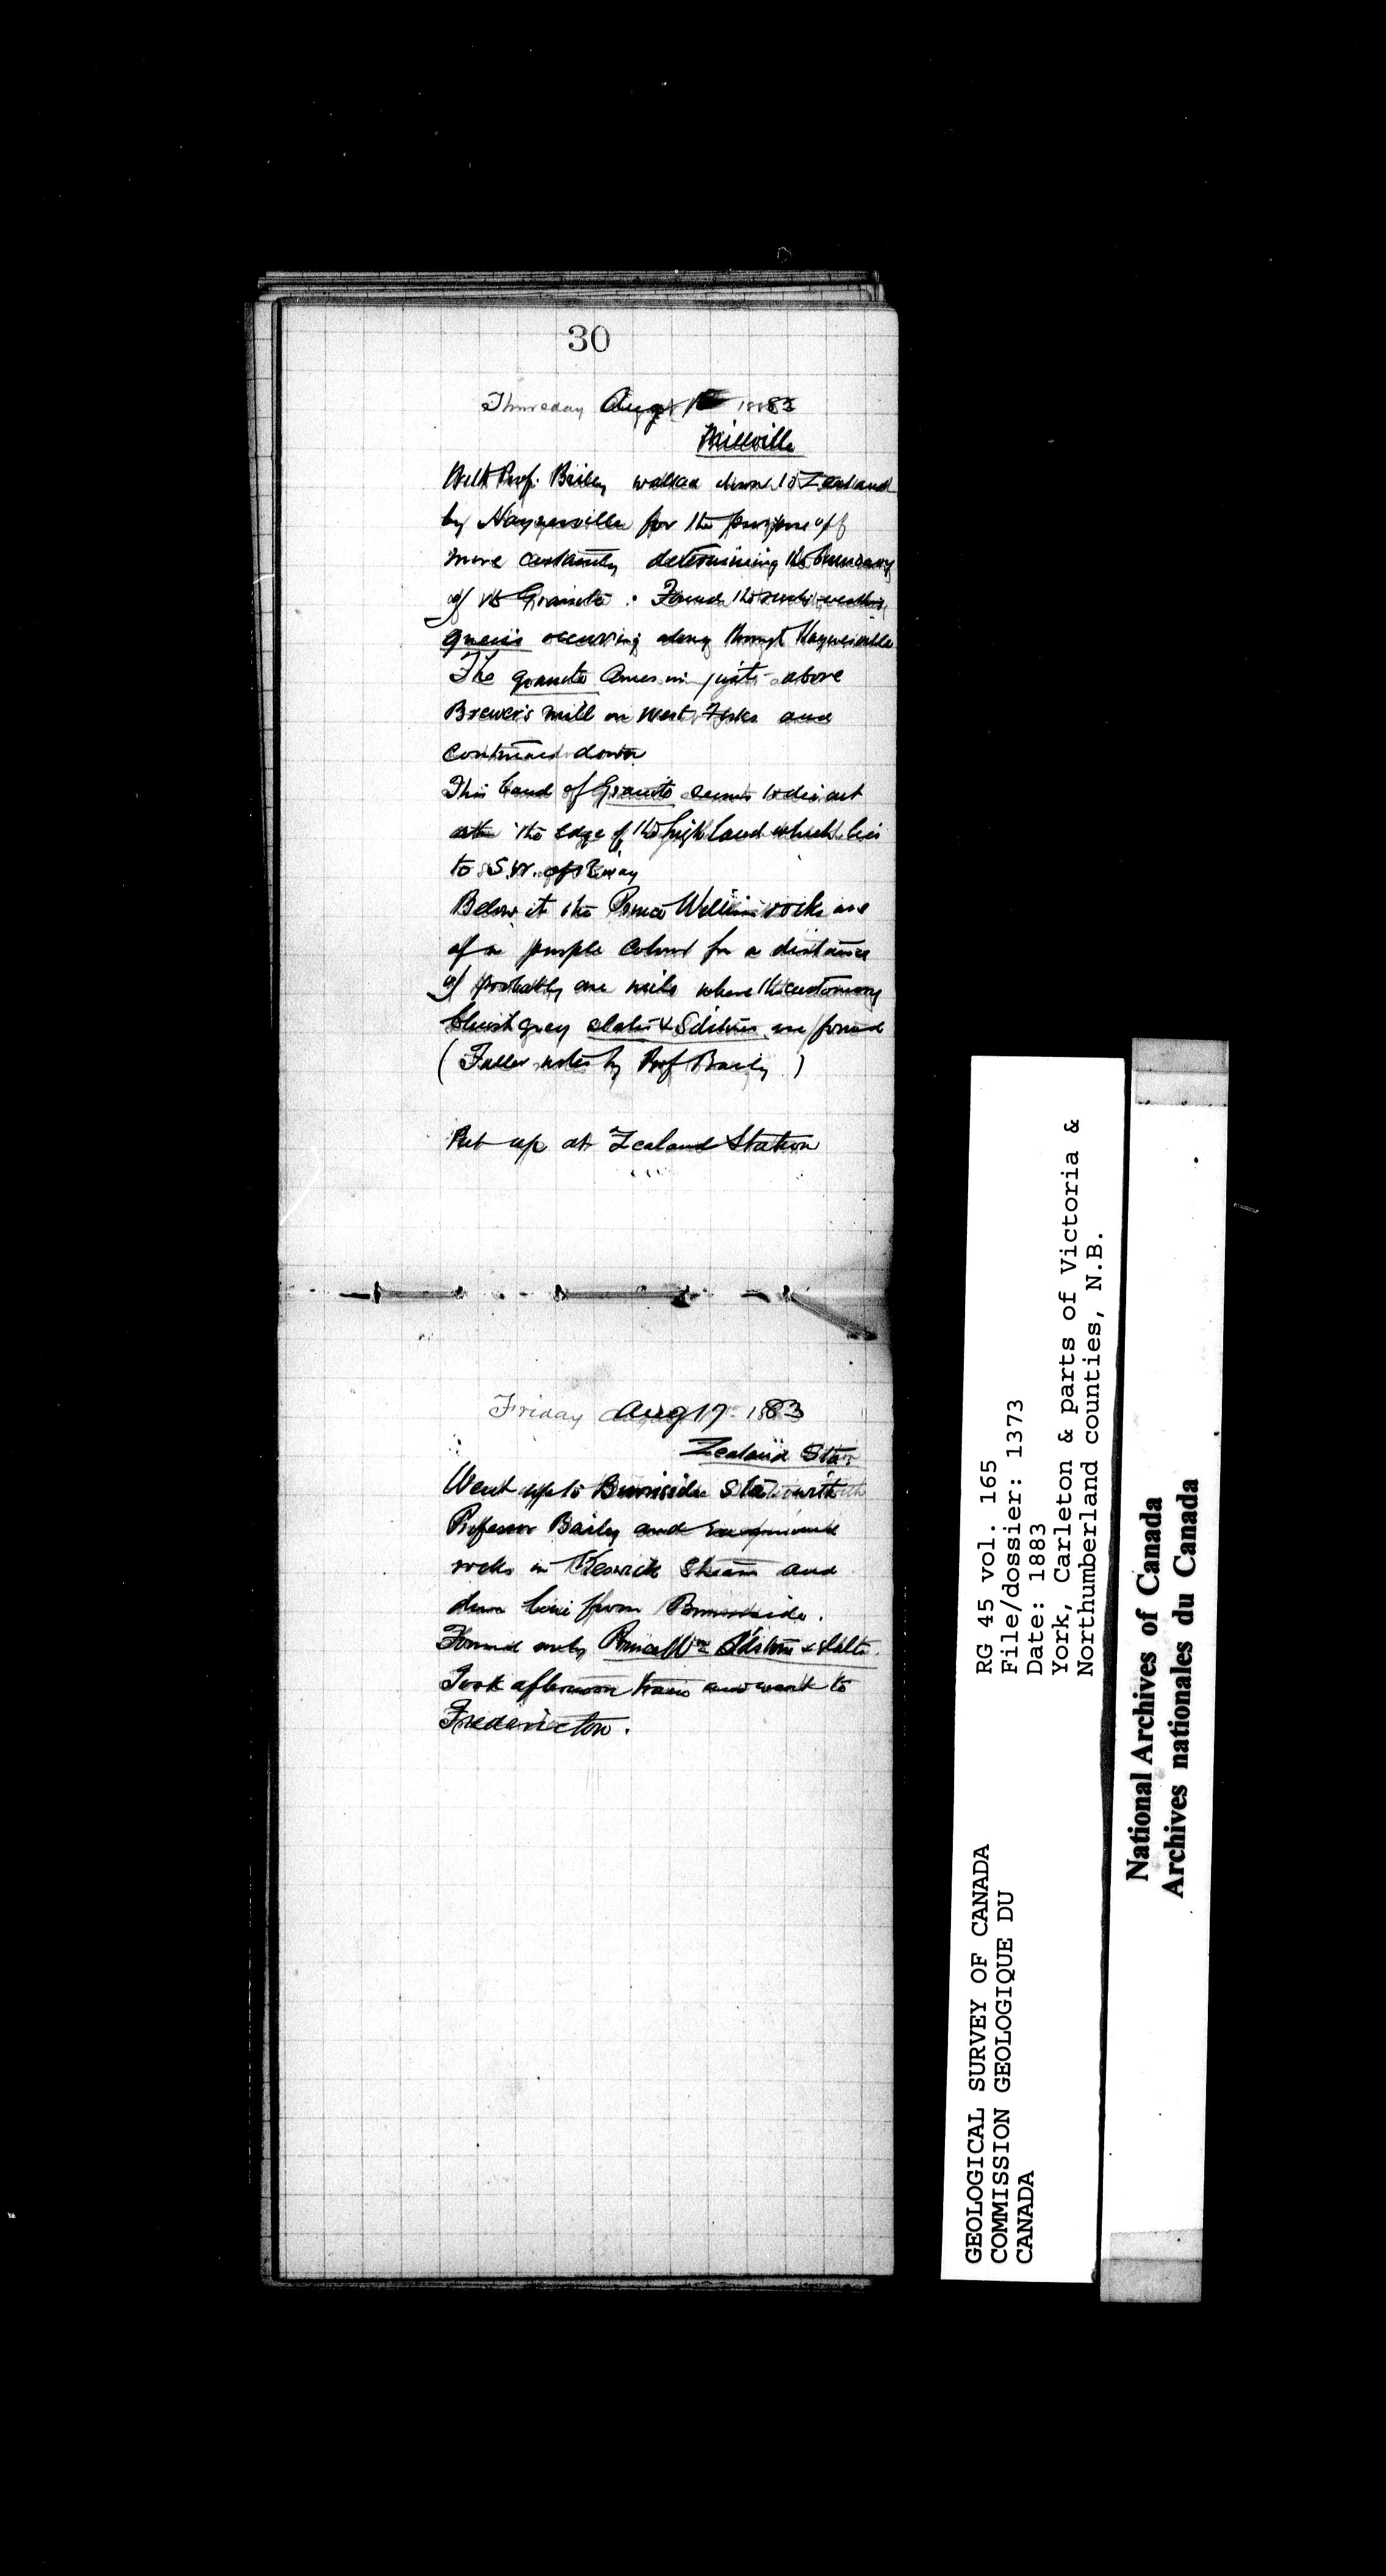 30
Thursday Aug 1883
Millville
With Prof. Bailey walked down to Zealand
by Haynesville for the purpose of
more certainly determining the boundary
of the Granite. Found the
gneiss occurring along through Haynesville
The granite comes in just above
Brewer's mill on West Forks and
continued down
This band of Granite seems to die out
at the edge of the high land which lies
to S.W. of
Below it the Prince William rocks are
of a purple colour for a distance
of probably one mile where the customary
bluish grey slates & Sdstones are found
(Fuller notes by Prof Baily)
Put up at Zealand Station
Friday Aug 17 1883
Zealand Sta.
Went up to Burnside Sta with
Professor Baily and examined
rocks in Keswick Stream and
down line from Burnside.
Found only Prince Wm Sdstone & slate.
Took afternoon train and went to
Fredericton.
GEOLOGICAL SURVEY OF CANADA
COMMISSION GEOLOGIQUE DU
CANADA
RG 45 vol. 165
File/dossier: 1373
Date: 1883
York, Carleton & parts of Victoria &
Northumberland counties, N.B.
National Archives of Canada
Archives nationales du Canada